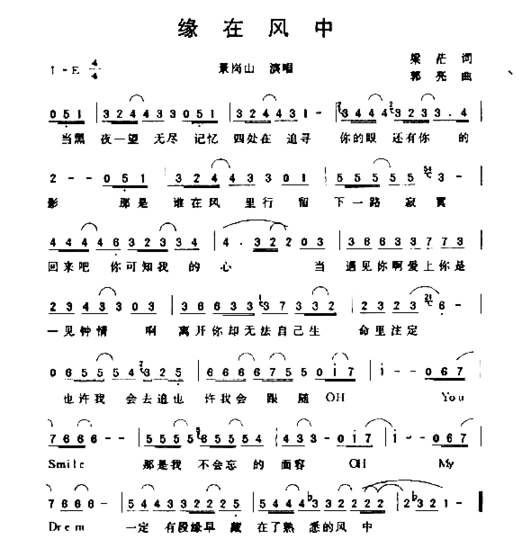 缘在风中
1=E 4/4 景岗山 演唱 梁茫 词
郭亮 曲
051 324433051 32431-- 3444 3233.4
当黑 夜一望 无尽 记忆 四处在 追寻 你的眼 还有你 的
2--051 324433301 55555 3-
影 那是 谁在风 里行 留 下一路 寂寞
4444632334 4.32203 36633773
回来吧 你可知我 的 心 当 遇见你啊爱上你是
23433303 366333733 2 2323 6-
一见钟情 啊 离开你却无法自己生 命里注定
065554325 6666755 0i7 i--067
也许我 会去追也 许我会 跟 随OH You
7666-- 555565554 433-0i7 i-067
Smile 那是我 不会忘 的 面容 OH My
7666- 5443322225 5444b332222 2b321-
Drem 一定 有段缘早 藏 在了熟 悉的风 中